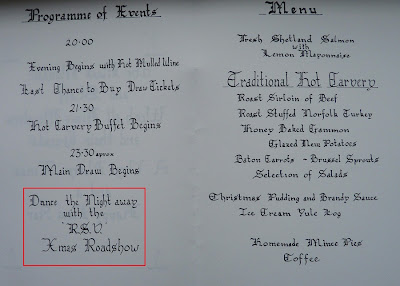 Programme of Events
20:00
Evening Begins with Hot Mulled Wine
Last Chance to Buy Draw Tickets
21:30
Hot Carvery Buffet Begins
23:30 approx
Main Draw Begins
Dance the Night away
with the
"R.S.V."
Xmas Roadshow
Menu
Fresh Shetland Salmon
with
Lemon Mayonnaise
Traditional Hot Carvery
Roast Sirloin of Beef
Roast Stuffed Norfolk Turkey
Honey Baked Gammon
Glazed New Potatoes
Baton Carrots - Brussel Sprouts
Selection of Salads
Christmas Pudding and Brandy Sauce
Ice Cream Yule Log
Homemade Mince Pies
Coffee